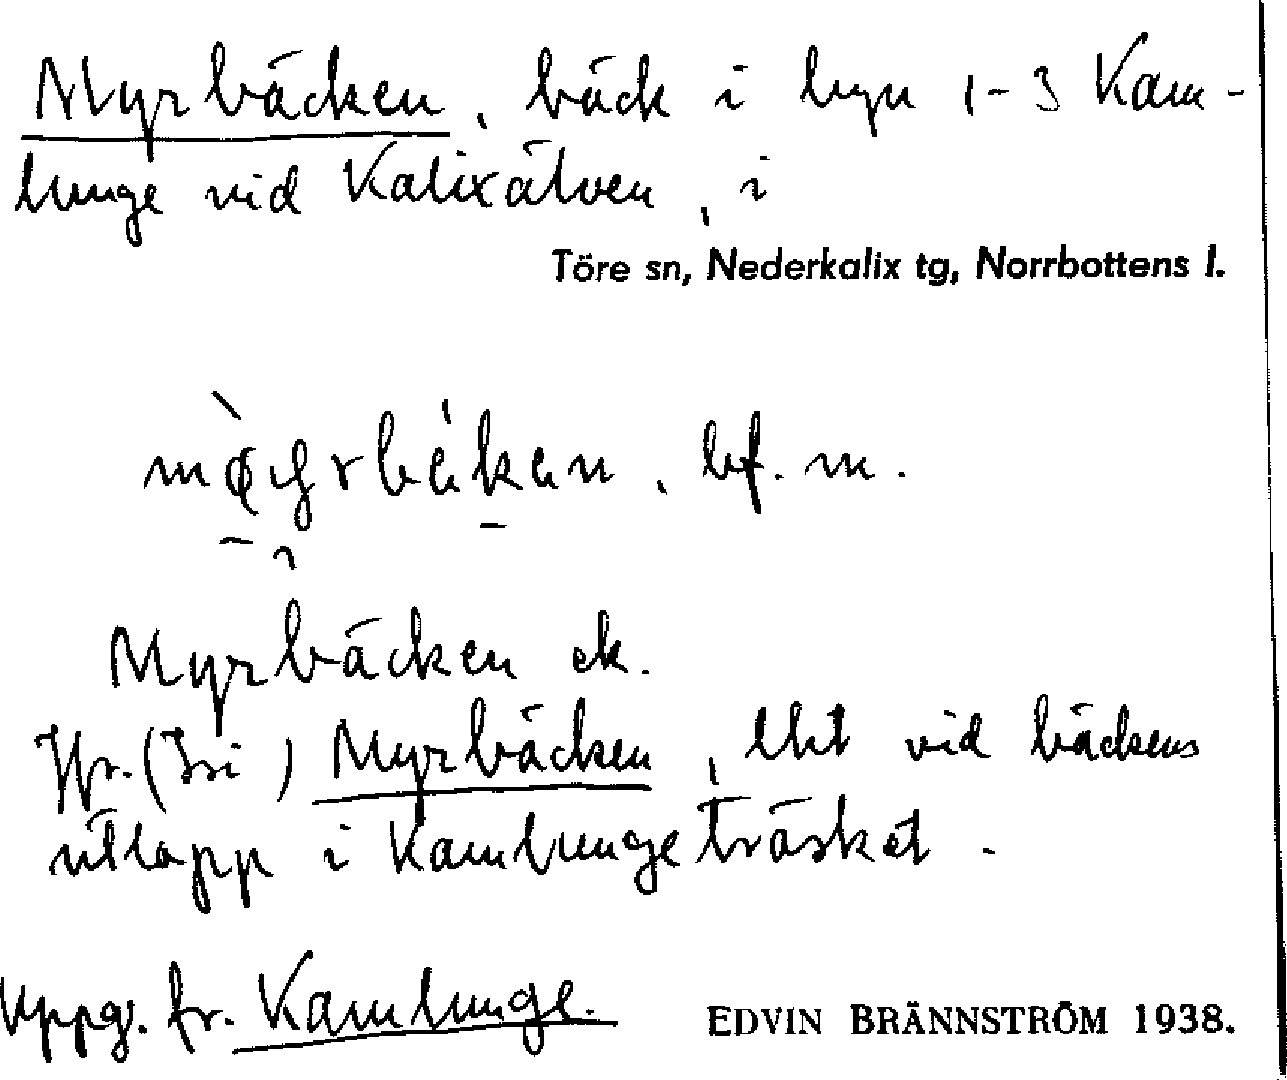 Myrbäcken, bäck i byn 1-3 Kam-
lunge vid Kalixälven, i
Töre sn, Nederkalix tg, Norrbottens l.
bf. m.
Myrbäcken ek.
Jfr. (3si) Myrbäcken, lht vid bäckens
utlopp i Kamlungeträsket.
Uppg. fr. Kamlunge. EDVIN BRÄNNSTRÖM 1938.